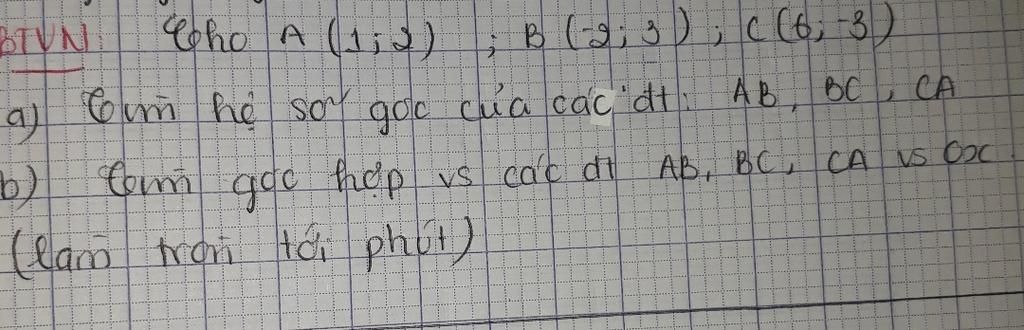 BTVN: Cho A (1; 2) ; B (-2; 3) ; C (6; -3)
a) Tìm hệ số góc của các đt: AB, BC, CA
b) Tìm góc hợp vs các đt AB, BC, CA vs Ox
(làm tròn tới phút)